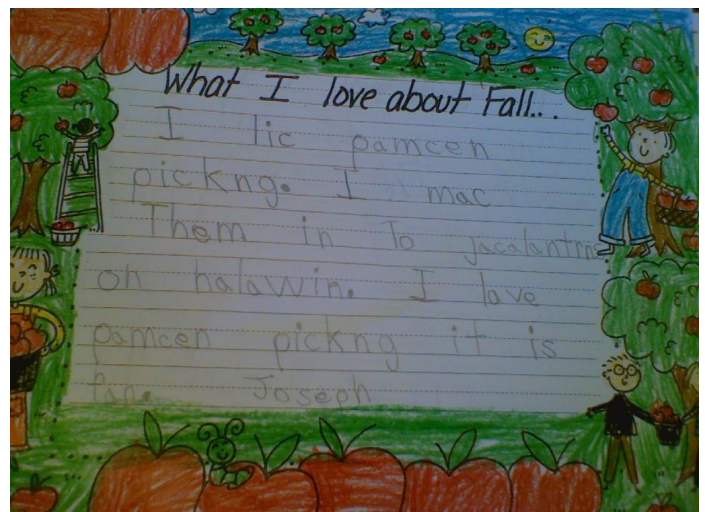 What I love about Fall...
I lic pamcen
pickng. I mac
Them in To jacalantrns
on halawin. I love
pamcen pickng it is
fan. Joseph